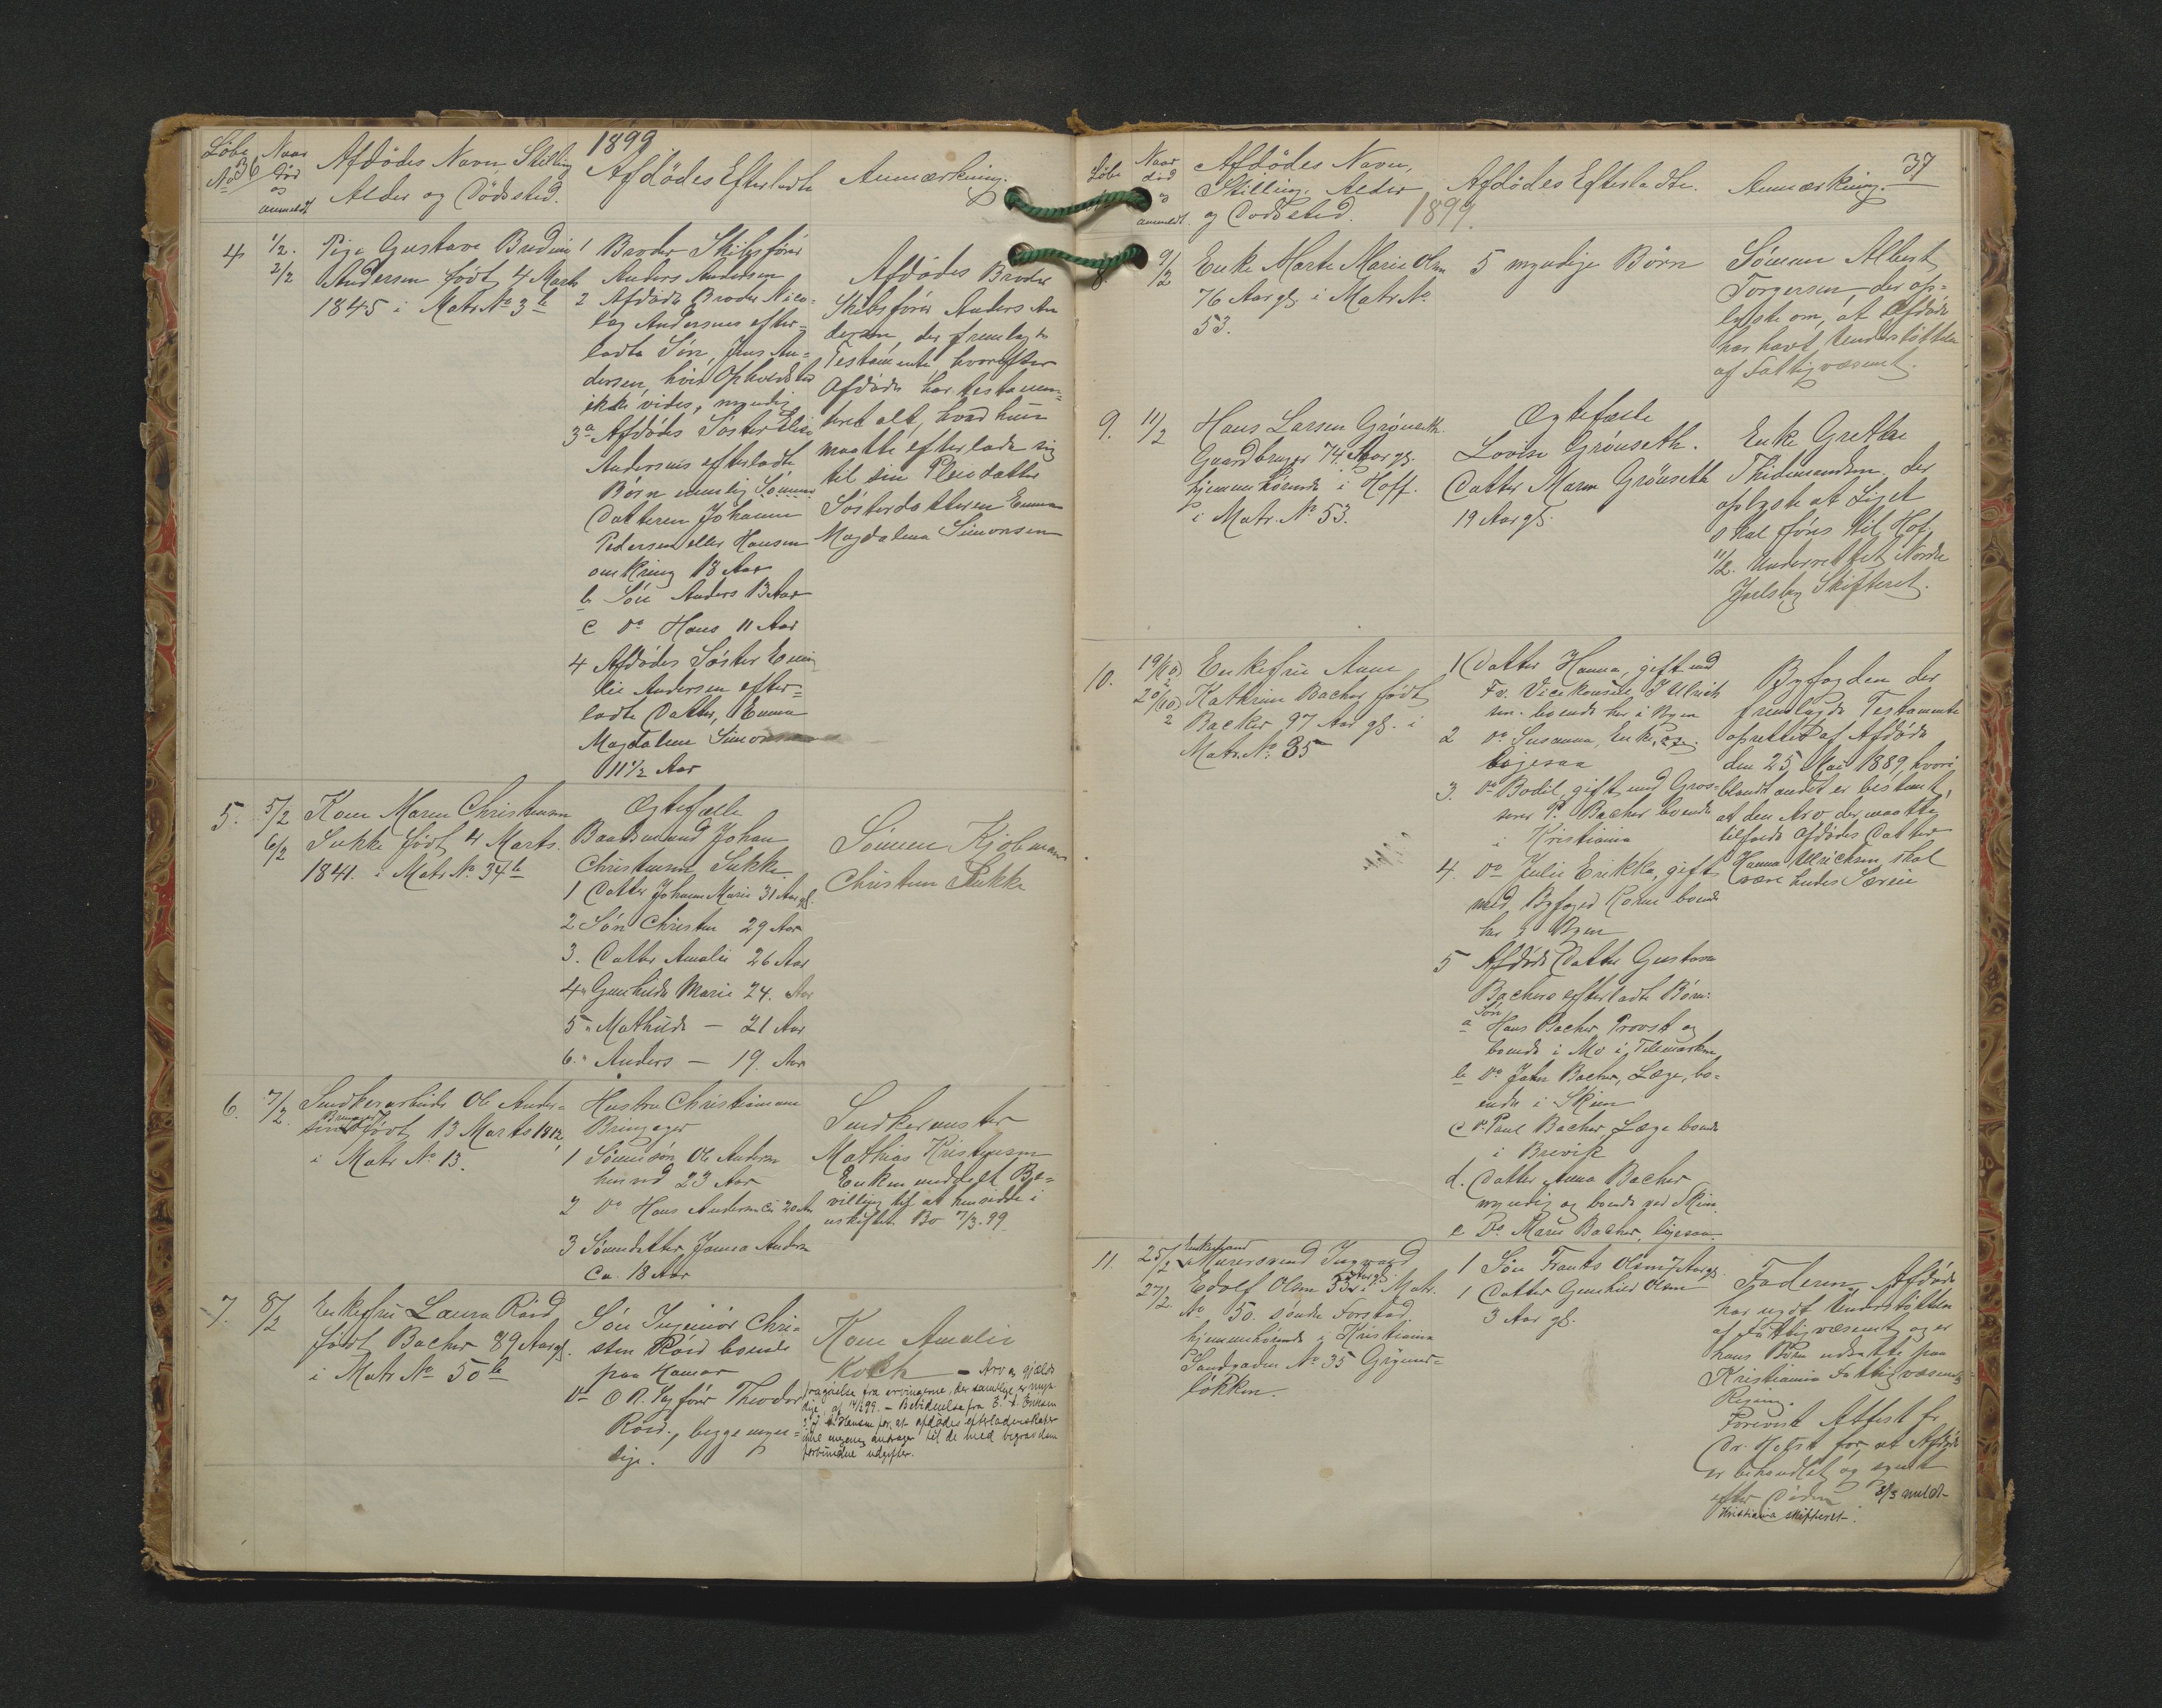 36
1899
Løbe No
Naar død og anmeldt
Afdødes Navn, Stilling
Alder og Dødssted.
Afdødes Efterladte
Anmærkning.
4
1/2.
2/2
Pige Gustave
Andersen født 4 Marts
1845 i Matr No 3b
1 Broder Skibsfører
Anders Andersen
2 Afdøde Broder Nico-
lay Andersens efter-
ladte Søn, Jens An-
dersen, hvis Opholdssted
ikke vides, myndig
3 a Afdødes Søster Elise
Andersens efterladte
Børn nemlig
Datteren Johanne
Pedersen eller Hansen
omkring 18 Aar
b Søn Anders 13 Aar
c Do Hans 11 Aar
4 Afdødes Søster Emi-
lie Andersen efter-
ladte Datter, Emma
Magdalene Simonsen
11 1/2 Aar
Afdødes Broder
Skibsfører Anders An
dersen, der fremlagde
Testamente hvorefter
Afdøde har testamen-
teret alt, hvad hun
maatte efterlade sig
til sin Pleiedatter
Søsterdatteren Emma
Magdalena Simonsen
5.
5/2
6/2
Kone Maren Christensen
Sukke født 4 Marts
1841. i Matr No 34b
Ægtefælle
Baadsmand Johan
Christensen Sukke
1 Datter Johanne Marie 31 Aar gl.
2 Søn Christen 29 Aar
3. Datter Amalie 26 Aar
4 " Gunhilde Marie 24. Aar
5 " Mathilde — 21 Aar
6. " Anders — 19. Aar
Sønnen Kjøbmand
Christen Sukke
6.
7/2.
Snedkerarbeider Ole Ander-
sen Bringager født 13 Marts 1812,
i Matr No 13.
Hustru Christianne
Bringager
1 Sønnesøn Ole Andersen
henved 23 Aar
2 Do Hans Andersen ca 20 Aar
3 Sønnedatter Janna Andersen
Ca. 18 Aar
Snedkermester
Mathias Kristensen
Enken meddelt Be-
villing til at hensidde i
uskiftet Bo 7/3. 99
7.
8/2
Enkefru Laura Röed
født Bacher 89 Aar gl.
i Matr No 50b
Søn Ingeniør Chri-
sten Röed boende
paa Hamar
Do O. R. Sagfører Theodor
Röed, begge myn-
dige.
Kone Amalie
Koch — Arv og gjælds
fragaaelse fra arvingerne, der samtlige er myn-
dige, af 14/2 99. — Bevidnelse fra E. A. Eriksen
& J. Hansen for, at afdødes efterladenskaber
ikke engang andrager til de med begravelsen
forbundne udgifter.
37
Løbe
Naar død og anmeldt.
Afdødes Navn,
Stilling, Alder
og Dødssted.
Afdødes Efterladte.
1899.
Anmærkning.
8.
9/2
Enke Marte Marie Olsen
76 Aar gl. i Matr No
53.
5 myndige Børn
Sønnen Albert
Torgersen, der op-
lyste om, at Afdøde
har havt Understøttelse
af Fattigvæsenet.
9.
11/2
Hans Larsen Grönseth
Gaardbruger 74 Aar gl.
hjemmehørende i Hoff.
i Matr. No 53.
Ægtefælle
Lovise Grönseth.
Datter Maren Grönseth
19 Aar gl.
Enke Grethe
Thidemandsen, der
oplyste at Liget
skal føres til Hof.
11/2. Underrettet Nordre
Jarlsberg Skifteret.
10.
19/2
20/2
Enkefru Anne
Kathrine Bacher født
Backer 97 Aar gl. i
Matr. No. 35
1 Datter Hanna, gift med
Fv. Vicekonsul J Ulrich
sen. boende her i Byen
2 Do Susanna, Enke,
ligesaa
3. Do Bodil, gift med Gros-
serer P. Bacher boende
i Kristiania
4. Do Julie Erikka, gift
med Byfoged boende
her i Byen
5 Afdøde Datter Gustava
Bachers efterladte Børn:
a Søn Hans Bacher, Provst og
boende i Mo i Telemarken
b Do John Bacher, Læge, bo-
ende i Skien
c Do Paul Bacher, Læge boende
i Brevik
d. Datter Anna Bacher
myndig og boende ved Skien
e Do Marie Bacher, ligesaa.
Byfogden der
fremlagde Testamente
oprettet af Afdøde
den 25 Mai 1889, hvori
blandt andet er bestemt,
at den Arv der maatte
tilfalde Afdødes Datter
Hanna Ulrichsen, skal
være hendes Særeie
11.
25/2
27/2.
Enkemand
Murersvend Ingvard
Edolf Olsen 33 Aar gl. i Matr.
No 50. søndre Forstad
hjemmehørende i Kristiania
Sandgaden No 35 Grüner-
løkken.
1 Søn Frants Olsen 7 Aar gl.
1 Datter Gunhild Olsen
3 Aar gl.
Faderen, Afdøde
har nydt Understøttelse
af Fattigvæsenet og er
hans Børn udsatte paa
Kristiania Fattigvæsens
Regning.
Forevist Attest fr
Dr. for, at Afdøde
er behandlet og synet
efter Døden 3/3 meldt
Kristiania skifteret.